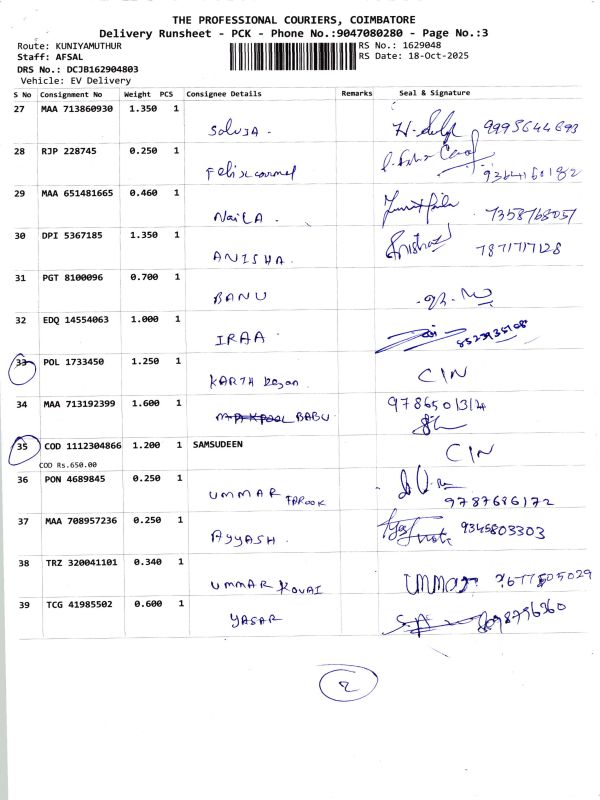 THE PROFESSIONAL COURIERS, COIMBATORE
Delivery Runsheet - PCK - Phone No.:9047080280 - Page No.:3
Route: KUNIYAMUTHUR RS No.: 1629048
Staff: AFSAL RS Date: 18-Oct-2025
DRS No.: DCJB162904803
Vehicle: EV Delivery
S No Consignment No Weight PCS Consignee Details Remarks Seal & Signature
27 MAA 713860930 1.350 1
SOLUJA.
28 RJP 228745 0.250 1
Felix carmel 9364150182
29 MAA 651481665 0.460 1
NAILA. 7358768051
30 DPI 5367185 1.350 1
ANISHA. 7871717128
31 PGT 8100096 0.700 1
BANU
32 EDQ 14554063 1.000 1
IRAA
33 POL 1733450 1.250 1
CIN
34 MAA 713192399 1.600 1
BABU
35 COD 1112304866 1.200 1 SAMSUDEEN
CIN
COD Rs.650.00
36 PON 4689845 0.250 1
UMMAR FAROOK 9787686172
37 MAA 708957236 0.250 1
AYYASH. 9345803303
38 TRZ 320041101 0.340 1
UMMAR KOVAI
39 TCG 41985502 0.600 1
YASAR
2